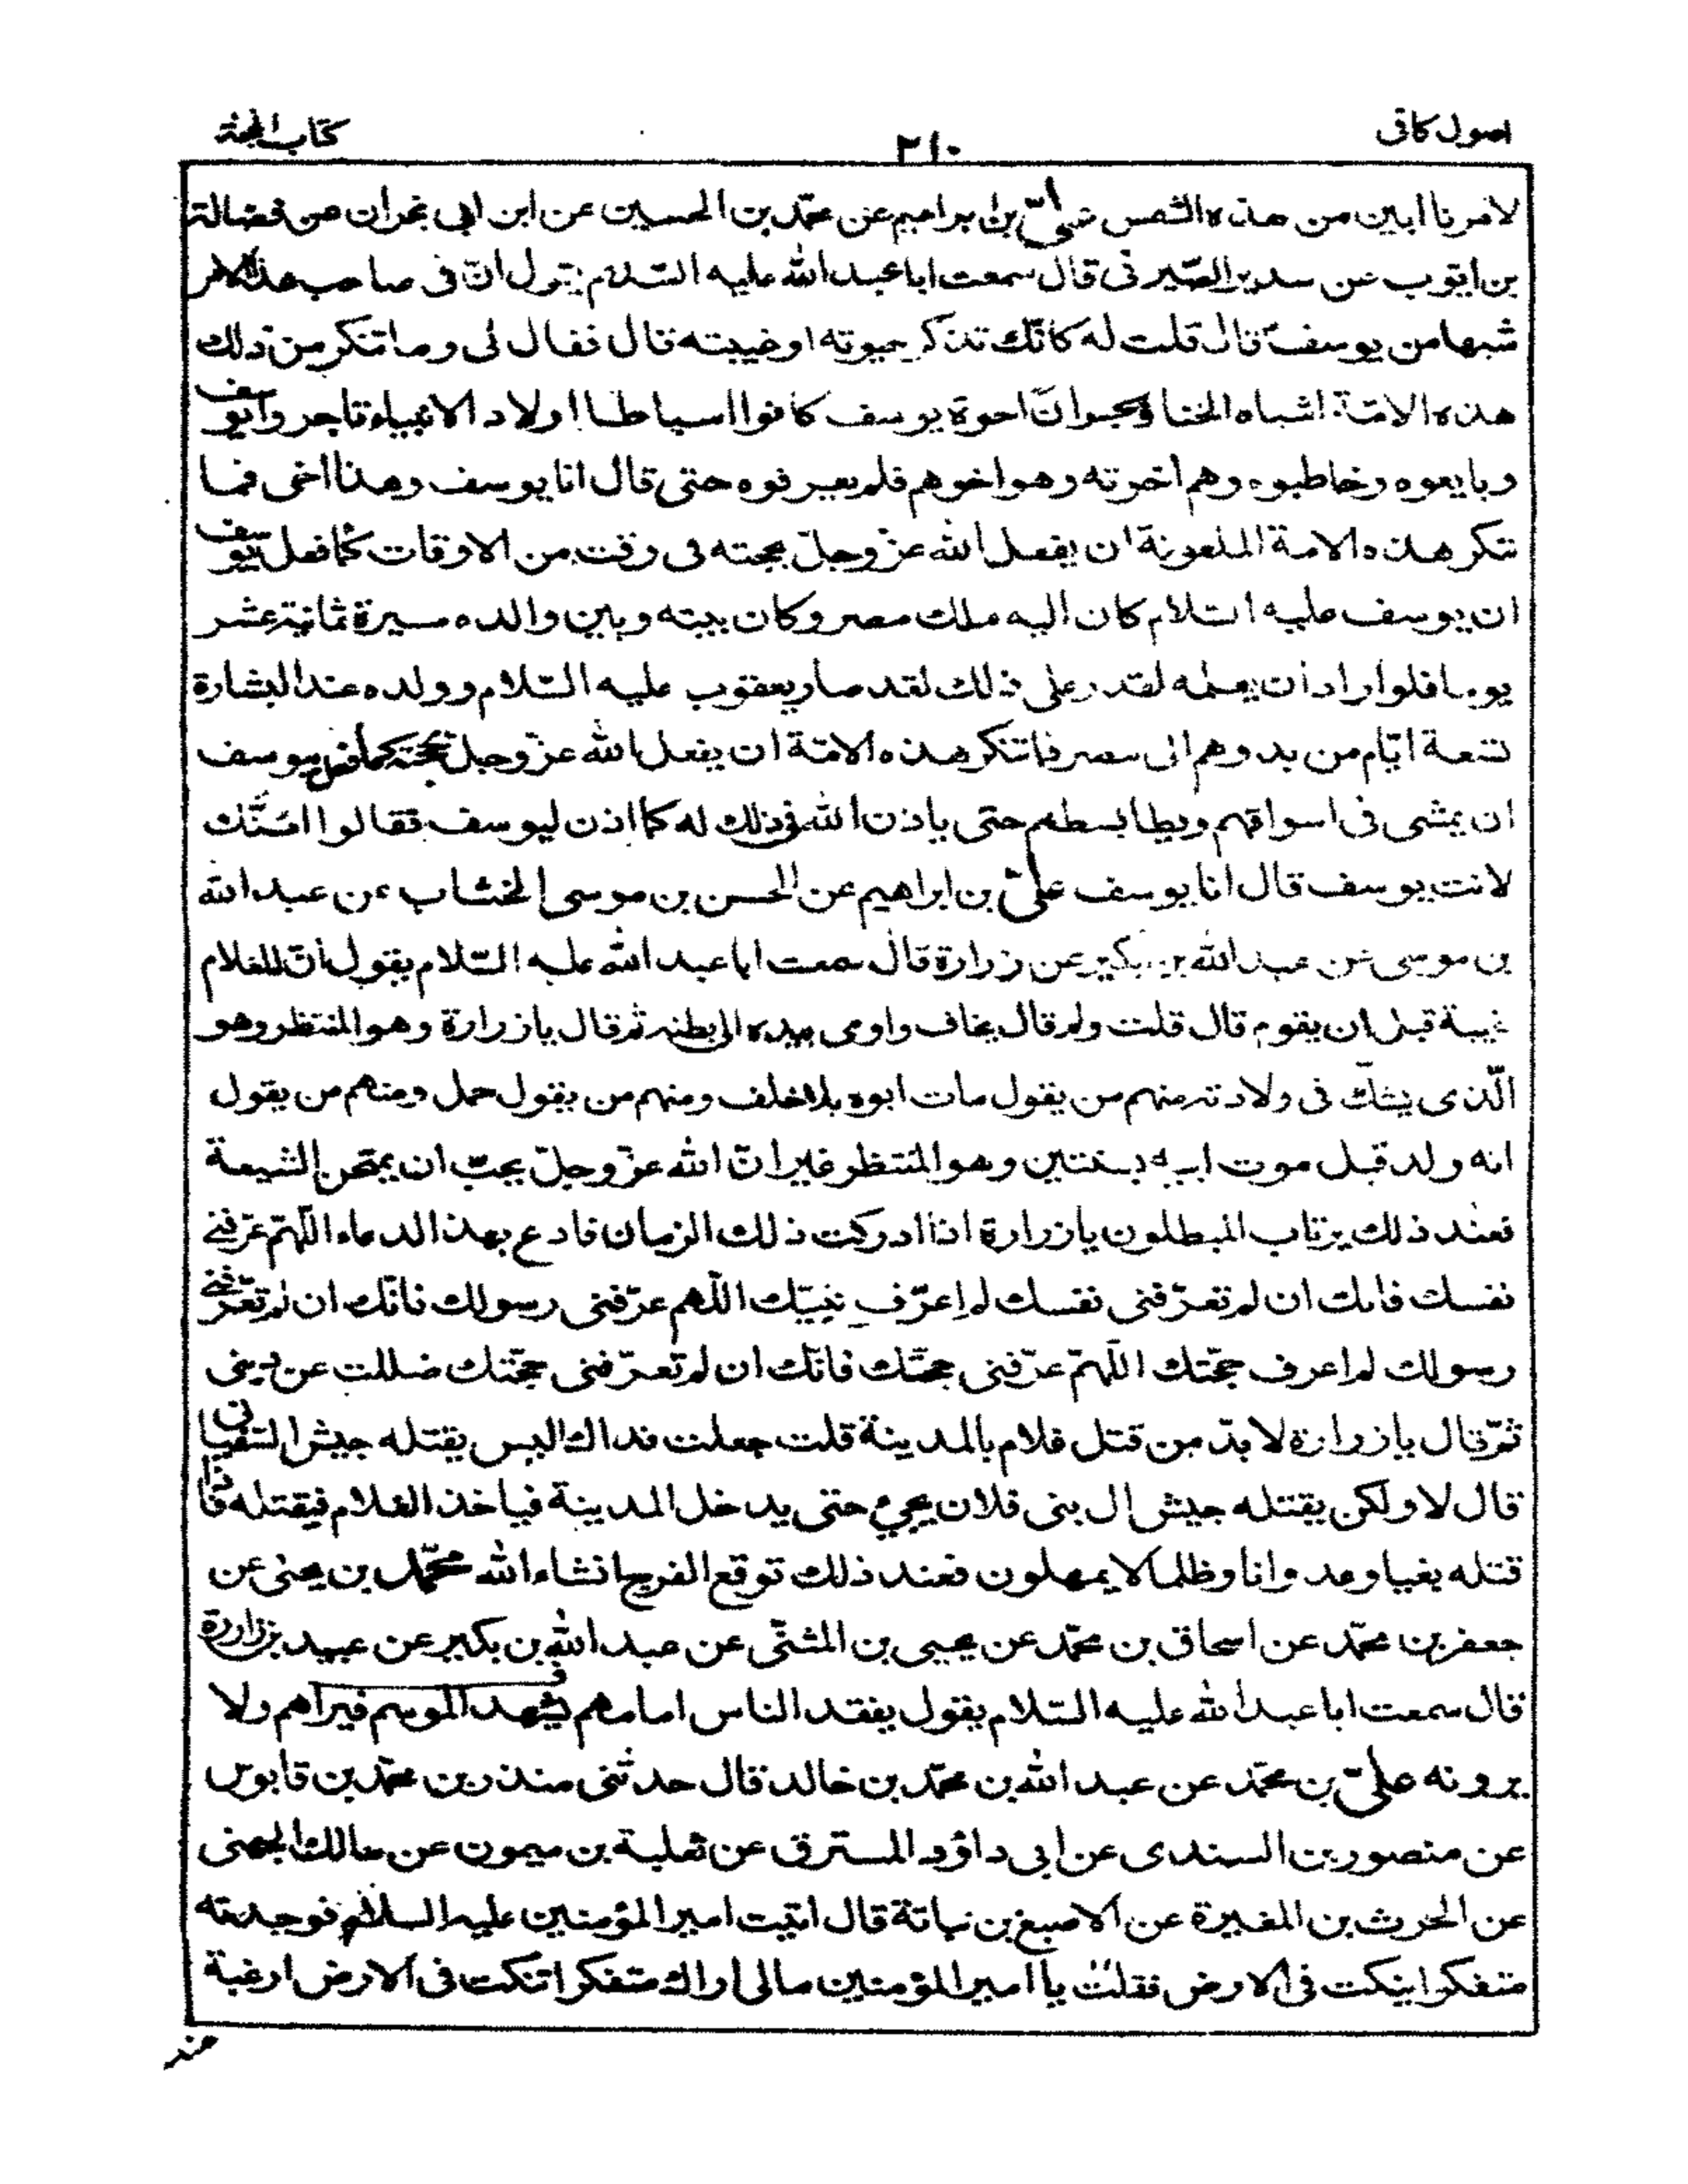 اصول كافى
٢١٠
كتاب الحجة
لامرنا ابين من هذه الشمس علىّ بن ابراهيم عن محمّد بن الحسين عن ابن ابى نجران عن فضالة
بن ايّوب عن سدير الصّيرفى قال سمعت ابا عبد الله عليه السّلام يقول انّ فى صاحب هذا الامر
شبها من يوسف قال قلت له كانّك تذكر حيوته او غيبته قال فقال لى وما تنكر من ذلك
هذه الامّة اشباه الخنازير انّ اخوة يوسف كانوا اسباطا اولاد الانبياء تاجروا يوسف
وبايعوه وخاطبوه وهم اخوته وهو اخوهم فلم يعرفوه حتى قال انا يوسف وهذا اخى فما
تنكر هذه الامة الملعونة ان يفعل الله عزّ وجلّ بحجته فى وقت من الاوقات كما فعل بيوسف
ان يوسف عليه السّلام كان اليه ملك مصر وكان بينه وبين والده مسيرة ثمانية عشر
يوما فلو اراد ان يعلمه لقدر على ذلك لقد سار يعقوب عليه السّلام وولده عند البشارة
تسعة ايّام من بدوهم الى مصر فما تنكر هذه الامّة ان يفعل الله عزّ وجلّ بحجته كما فعل بيوسف
ان يمشى فى اسواقهم ويطا بسطهم حتى ياذن الله فى ذلك له كما اذن ليوسف فقالوا ائنّك
لانت يوسف قال انا يوسف علىّ بن ابراهيم عن الحسن بن موسى الخشاب عن عبد الله
بن موسى عن عبد الله بن بكير عن زرارة قال سمعت ابا عبد الله عليه السّلام يقول انّ للغلام
غيبة قبل ان يقوم قال قلت ولم قال يخاف واومى بيده الى بطنه ثم قال يا زرارة وهو المنتظر وهو
الّذى يشكّ فى ولادته منهم من يقول مات ابوه بلا خلف ومنهم من يقول حمل ومنهم من يقول
انه ولد قبل موت ابيه بسنتين وهو المنتظر غير انّ الله عزّ وجلّ يحبّ ان يمتحن الشيعة
فعند ذلك يرتاب المبطلون يا زرارة اذا ادركت ذلك الزمان فادع بهذا الدعاء اللّهمّ عرّفنى
نفسك فانك ان لم تعرّفنى نفسك لم اعرّف نبيّك اللّهم عرّفنى رسولك فانّك ان لم تعرّفنى
رسولك لم اعرف حجّتك اللّهمّ عرّفنى حجّتك فانّك ان لم تعرّفنى حجّتك ضللت عن دينى
ثمّ قال يا زرارة لا بدّ من قتل غلام بالمدينة قلت جعلت فداك اليس يقتله جيش السّفيانى
قال لا ولكن يقتله جيش ال بنى فلان يجىء حتى يدخل المدينة فياخذ الغلام فيقتله فاذا
قتله بغيا وعدوانا وظلما لا يمهلون فعند ذلك توقع الفرج انشاء الله محمّد بن يحيى عن
جعفر بن محمّد عن اسحاق بن محمّد عن يحيى بن المثنّى عن عبد الله بن بكير عن عبيد بن زرارة
قال سمعت ابا عبد الله عليه السّلام يقول يفقد الناس امامهم فيشهد الموسم فيراهم ولا
يرونه علىّ بن محمّد عن عبد الله بن محمّد بن خالد قال حدثنى منذر بن محمّد بن قابوس
عن منصور بن السندى عن ابى داؤد المسترق عن ثعلبة بن ميمون عن مالك الجهنى
عن الحرث بن المغيرة عن الاصبغ بن نباتة قال اتيت امير المؤمنين عليه السلام فوجدته
متفكرا ينكت فى الارض فقلت يا امير المؤمنين مالى اراك متفكرا تنكت فى الارض ارغبة